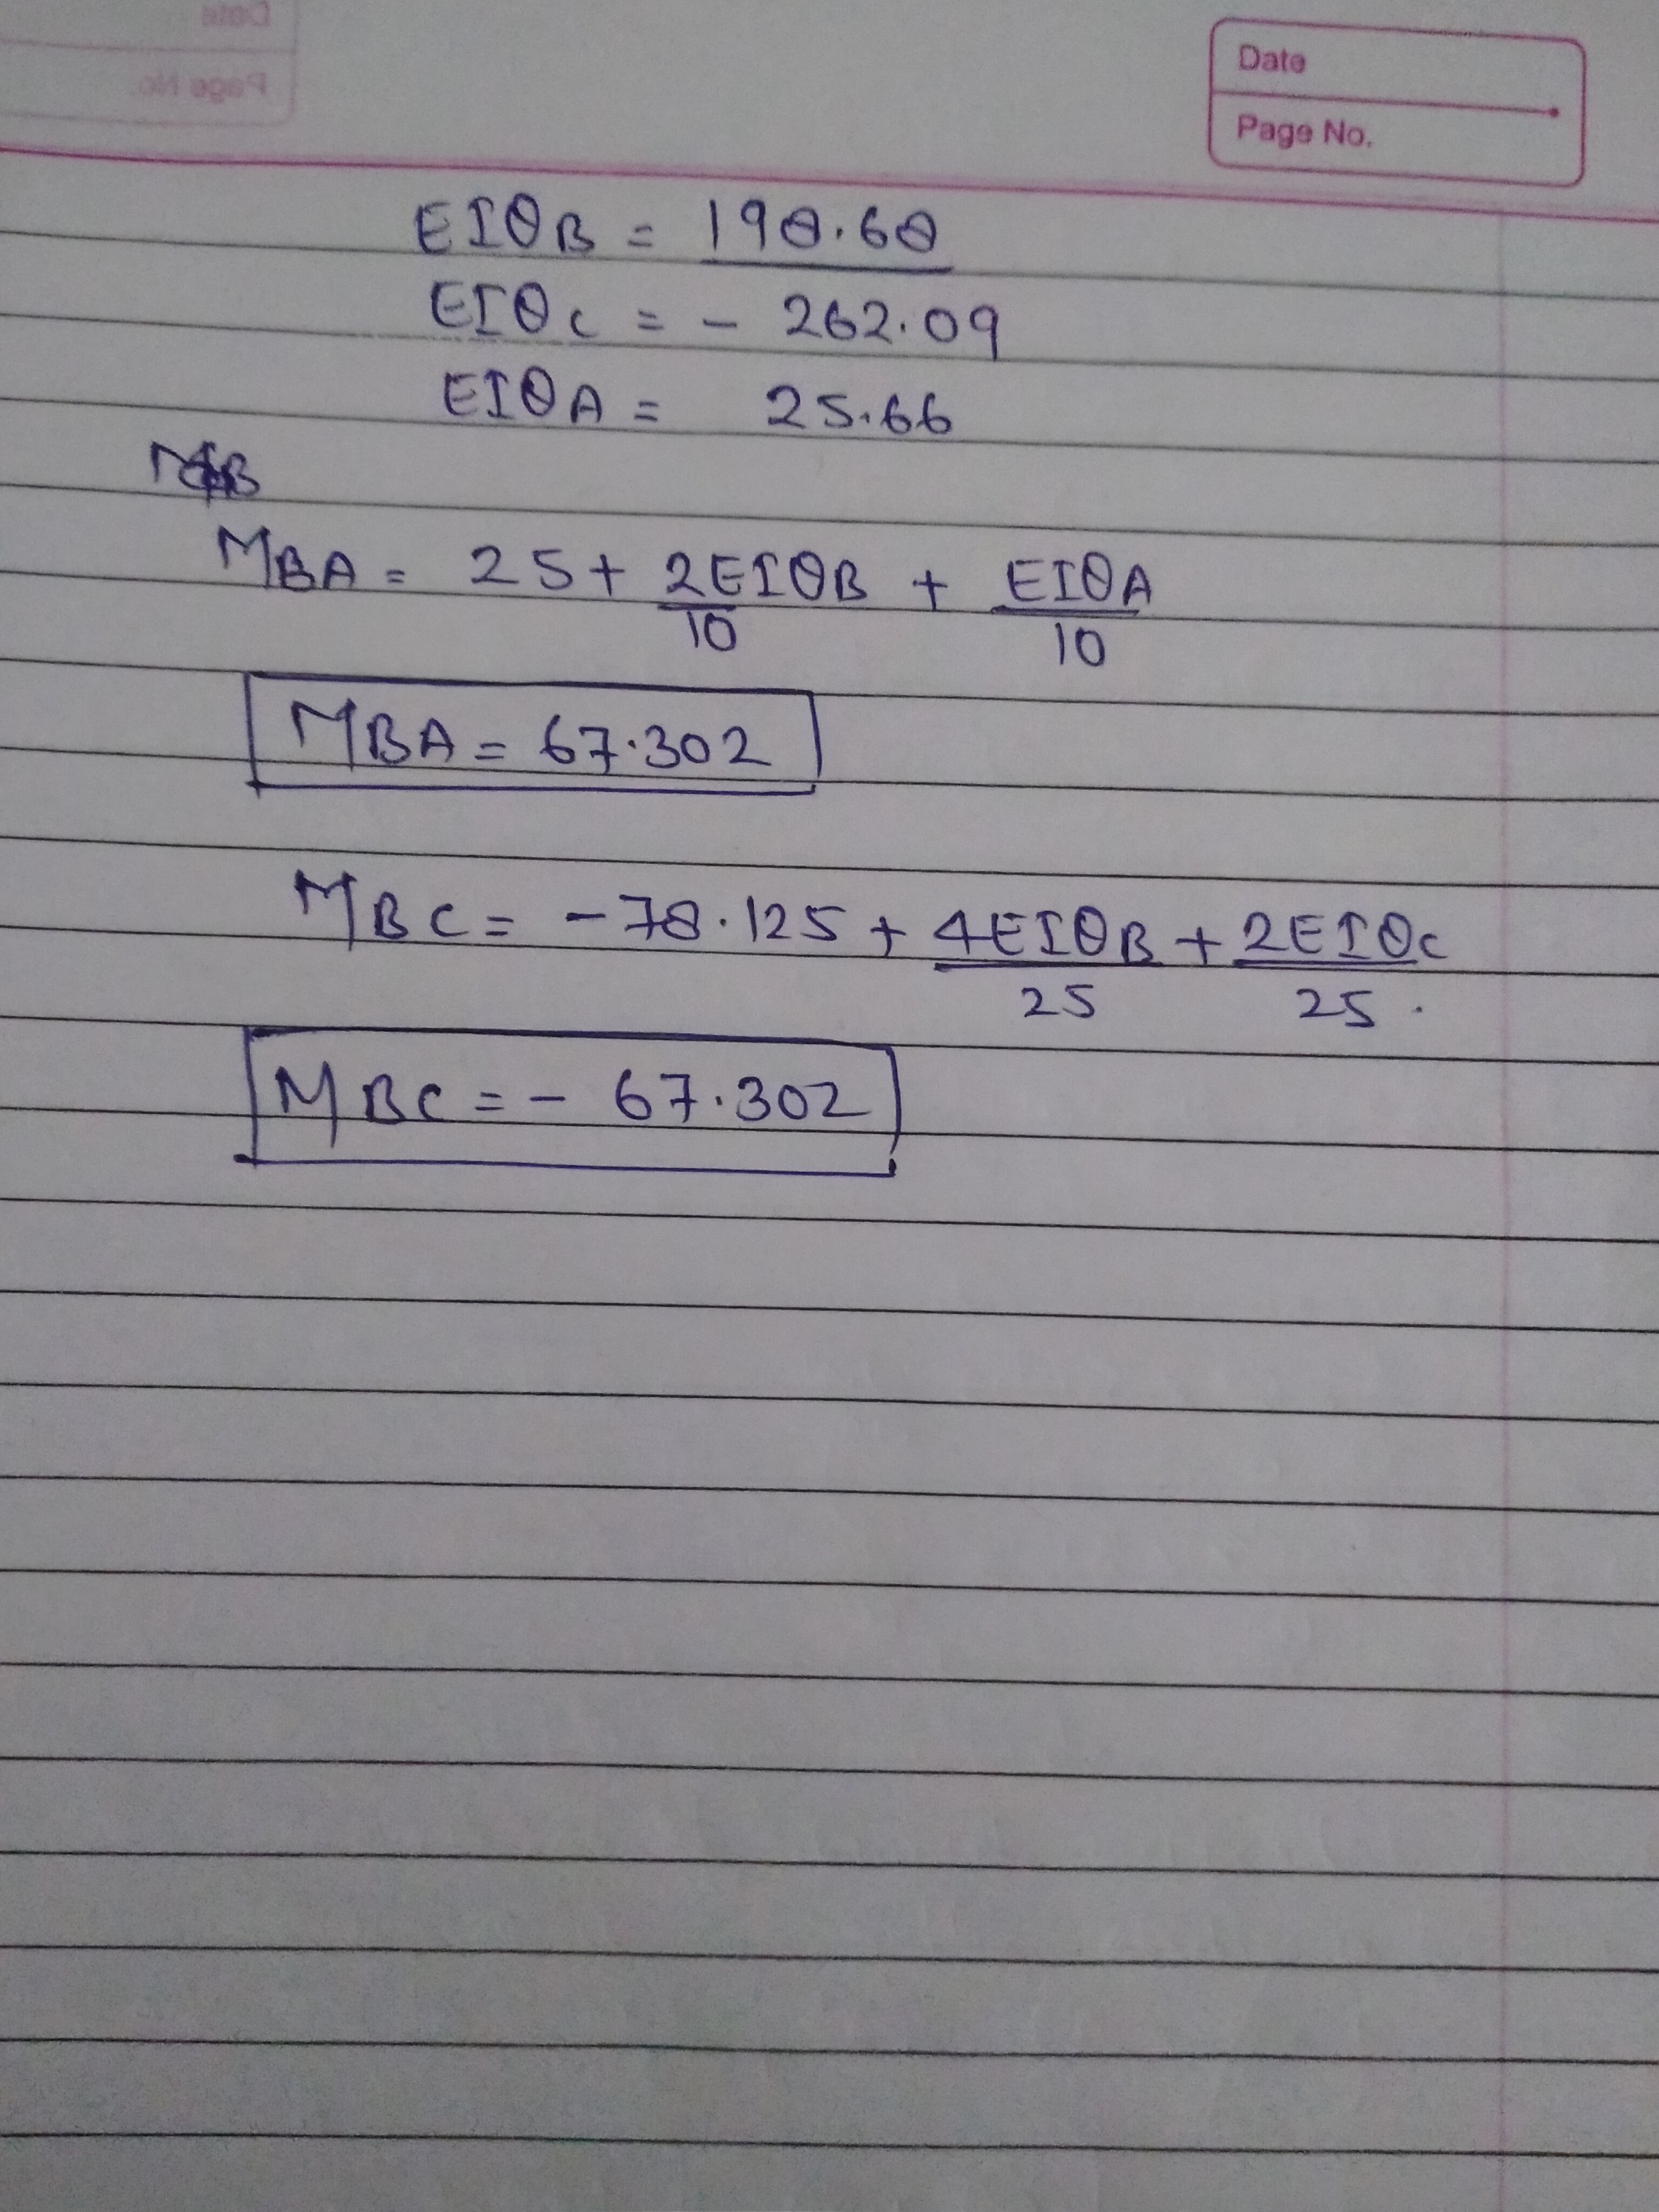 Date
Page No.
EIθB = 198.68
EIθC = - 262.09
EIθA = 25.66
MBA = 25 + 2EIθB/10 + EIθA/10
MBA = 67.302
MBC = -78.125 + 4EIθB/25 + 2EIθC/25.
MBC = - 67.302